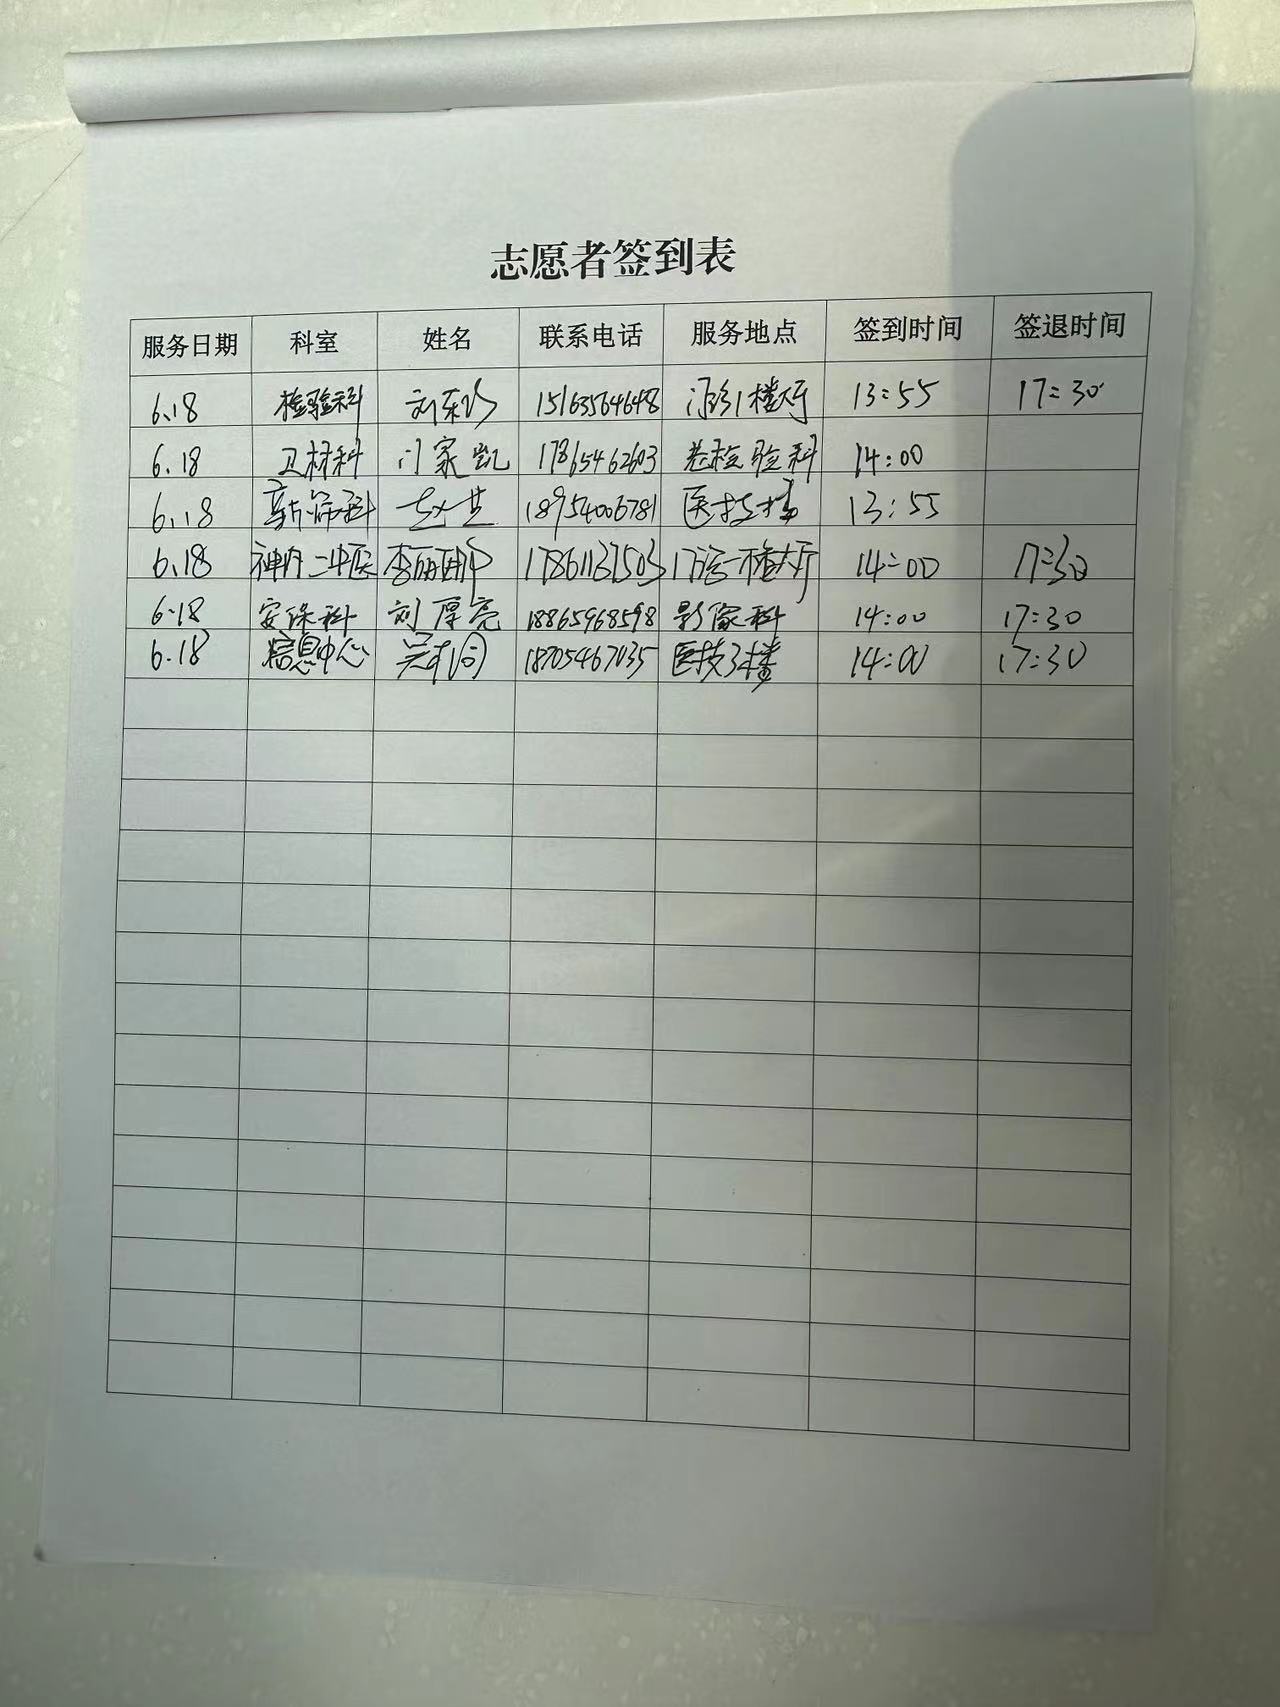 志愿者签到表
服务日期 科室 姓名 联系电话 服务地点 签到时间 签退时间
6.18 检验科 刘东 15163564648 门诊1楼大厅 13:55 17:30
6.18 卫材科 门家凯 17865462603 检验科 14:00
6.18 科 18954006781 医技楼 13:55
6.18 神内二中医 李丽 17861137503 门诊一楼大厅 14:00 17:30
6.18 安保科 刘厚亮 18865968598 影像科 14:00 17:30
6.18 信息中心 18705467035 医技3楼 14:00 17:30